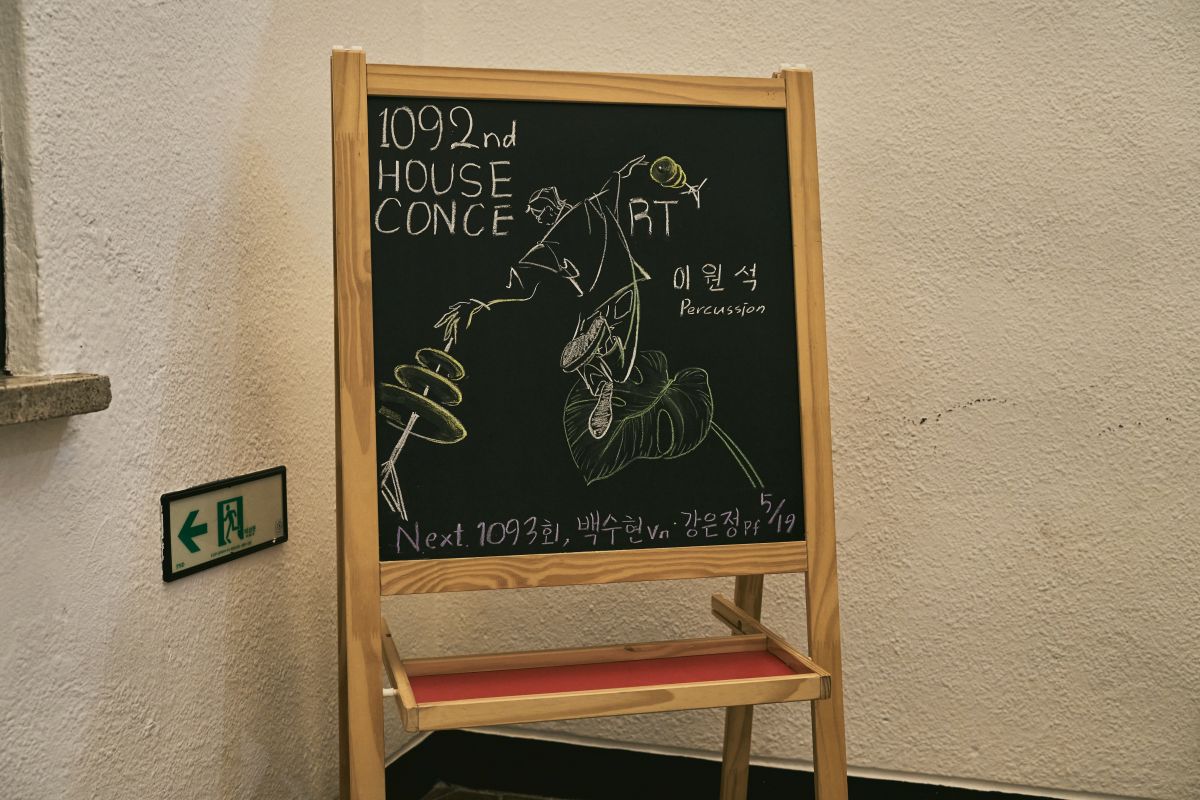 1092nd
HOUSE
CONCE RT
이원석
Percussion
Next. 1093회, 백수현 Vn·강은정 Pf 5/19